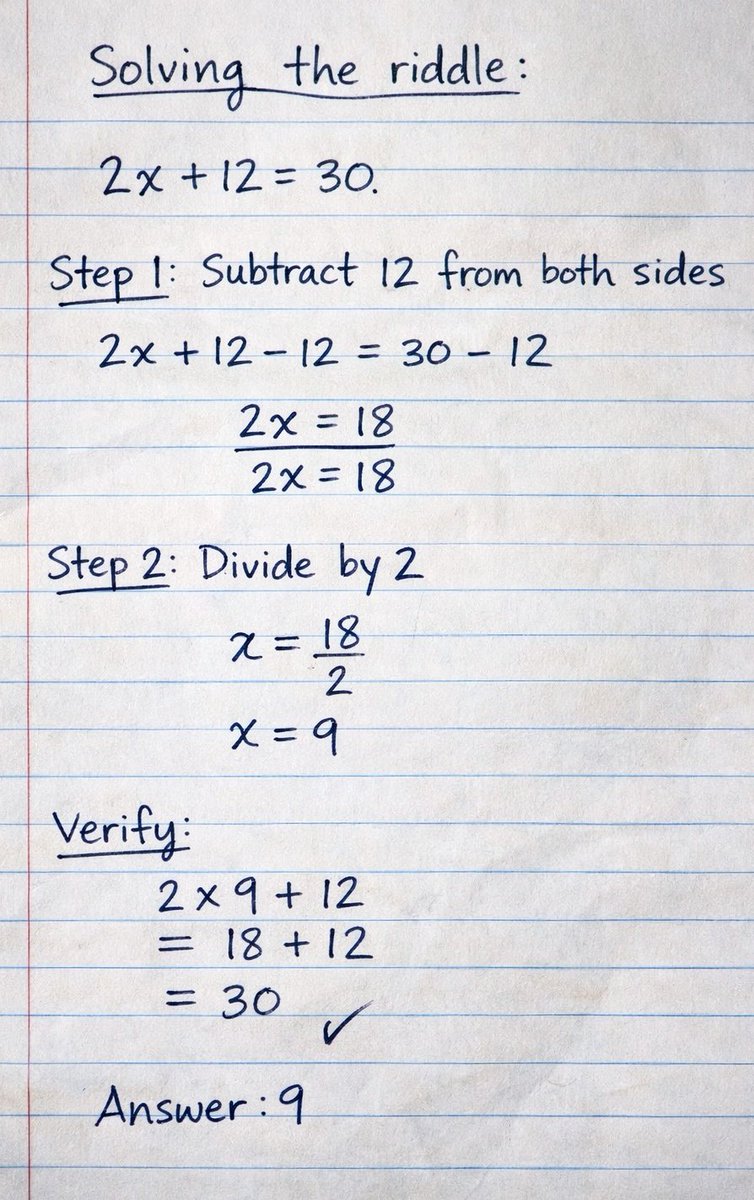 Solving the riddle:
2x + 12 = 30.
Step 1: Subtract 12 from both sides
2x + 12 - 12 = 30 - 12
2x = 18
2x = 18
Step 2: Divide by 2
x = 18/2
x = 9
Verify:
2 × 9 + 12
= 18 + 12
= 30 ✓
Answer: 9